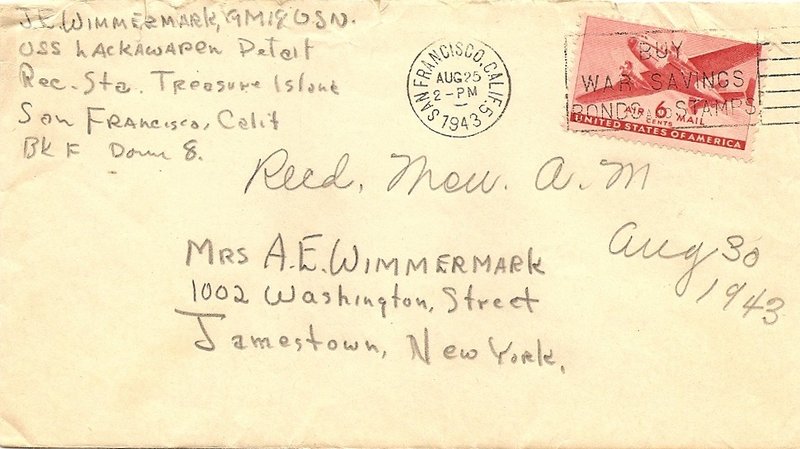 J.E. WIMMERMARK, GM1C USN.
USS LACKAWAPEN Detail
Rec. Sta. Treasure Island
San Francisco, Calif
Bk F Dorm 8.
SAN FRANCISCO, CALIF. 5
AUG 25
2-PM
1943
BUY
WAR SAVINGS
BONDS AND STAMPS
AIR 6 MAIL
CENTS
UNITED STATES OF AMERICA
Recd, Mon. A.M
Aug 30
1943
MRS A.E. WIMMERMARK
1002 Washington, Street
Jamestown, New York.